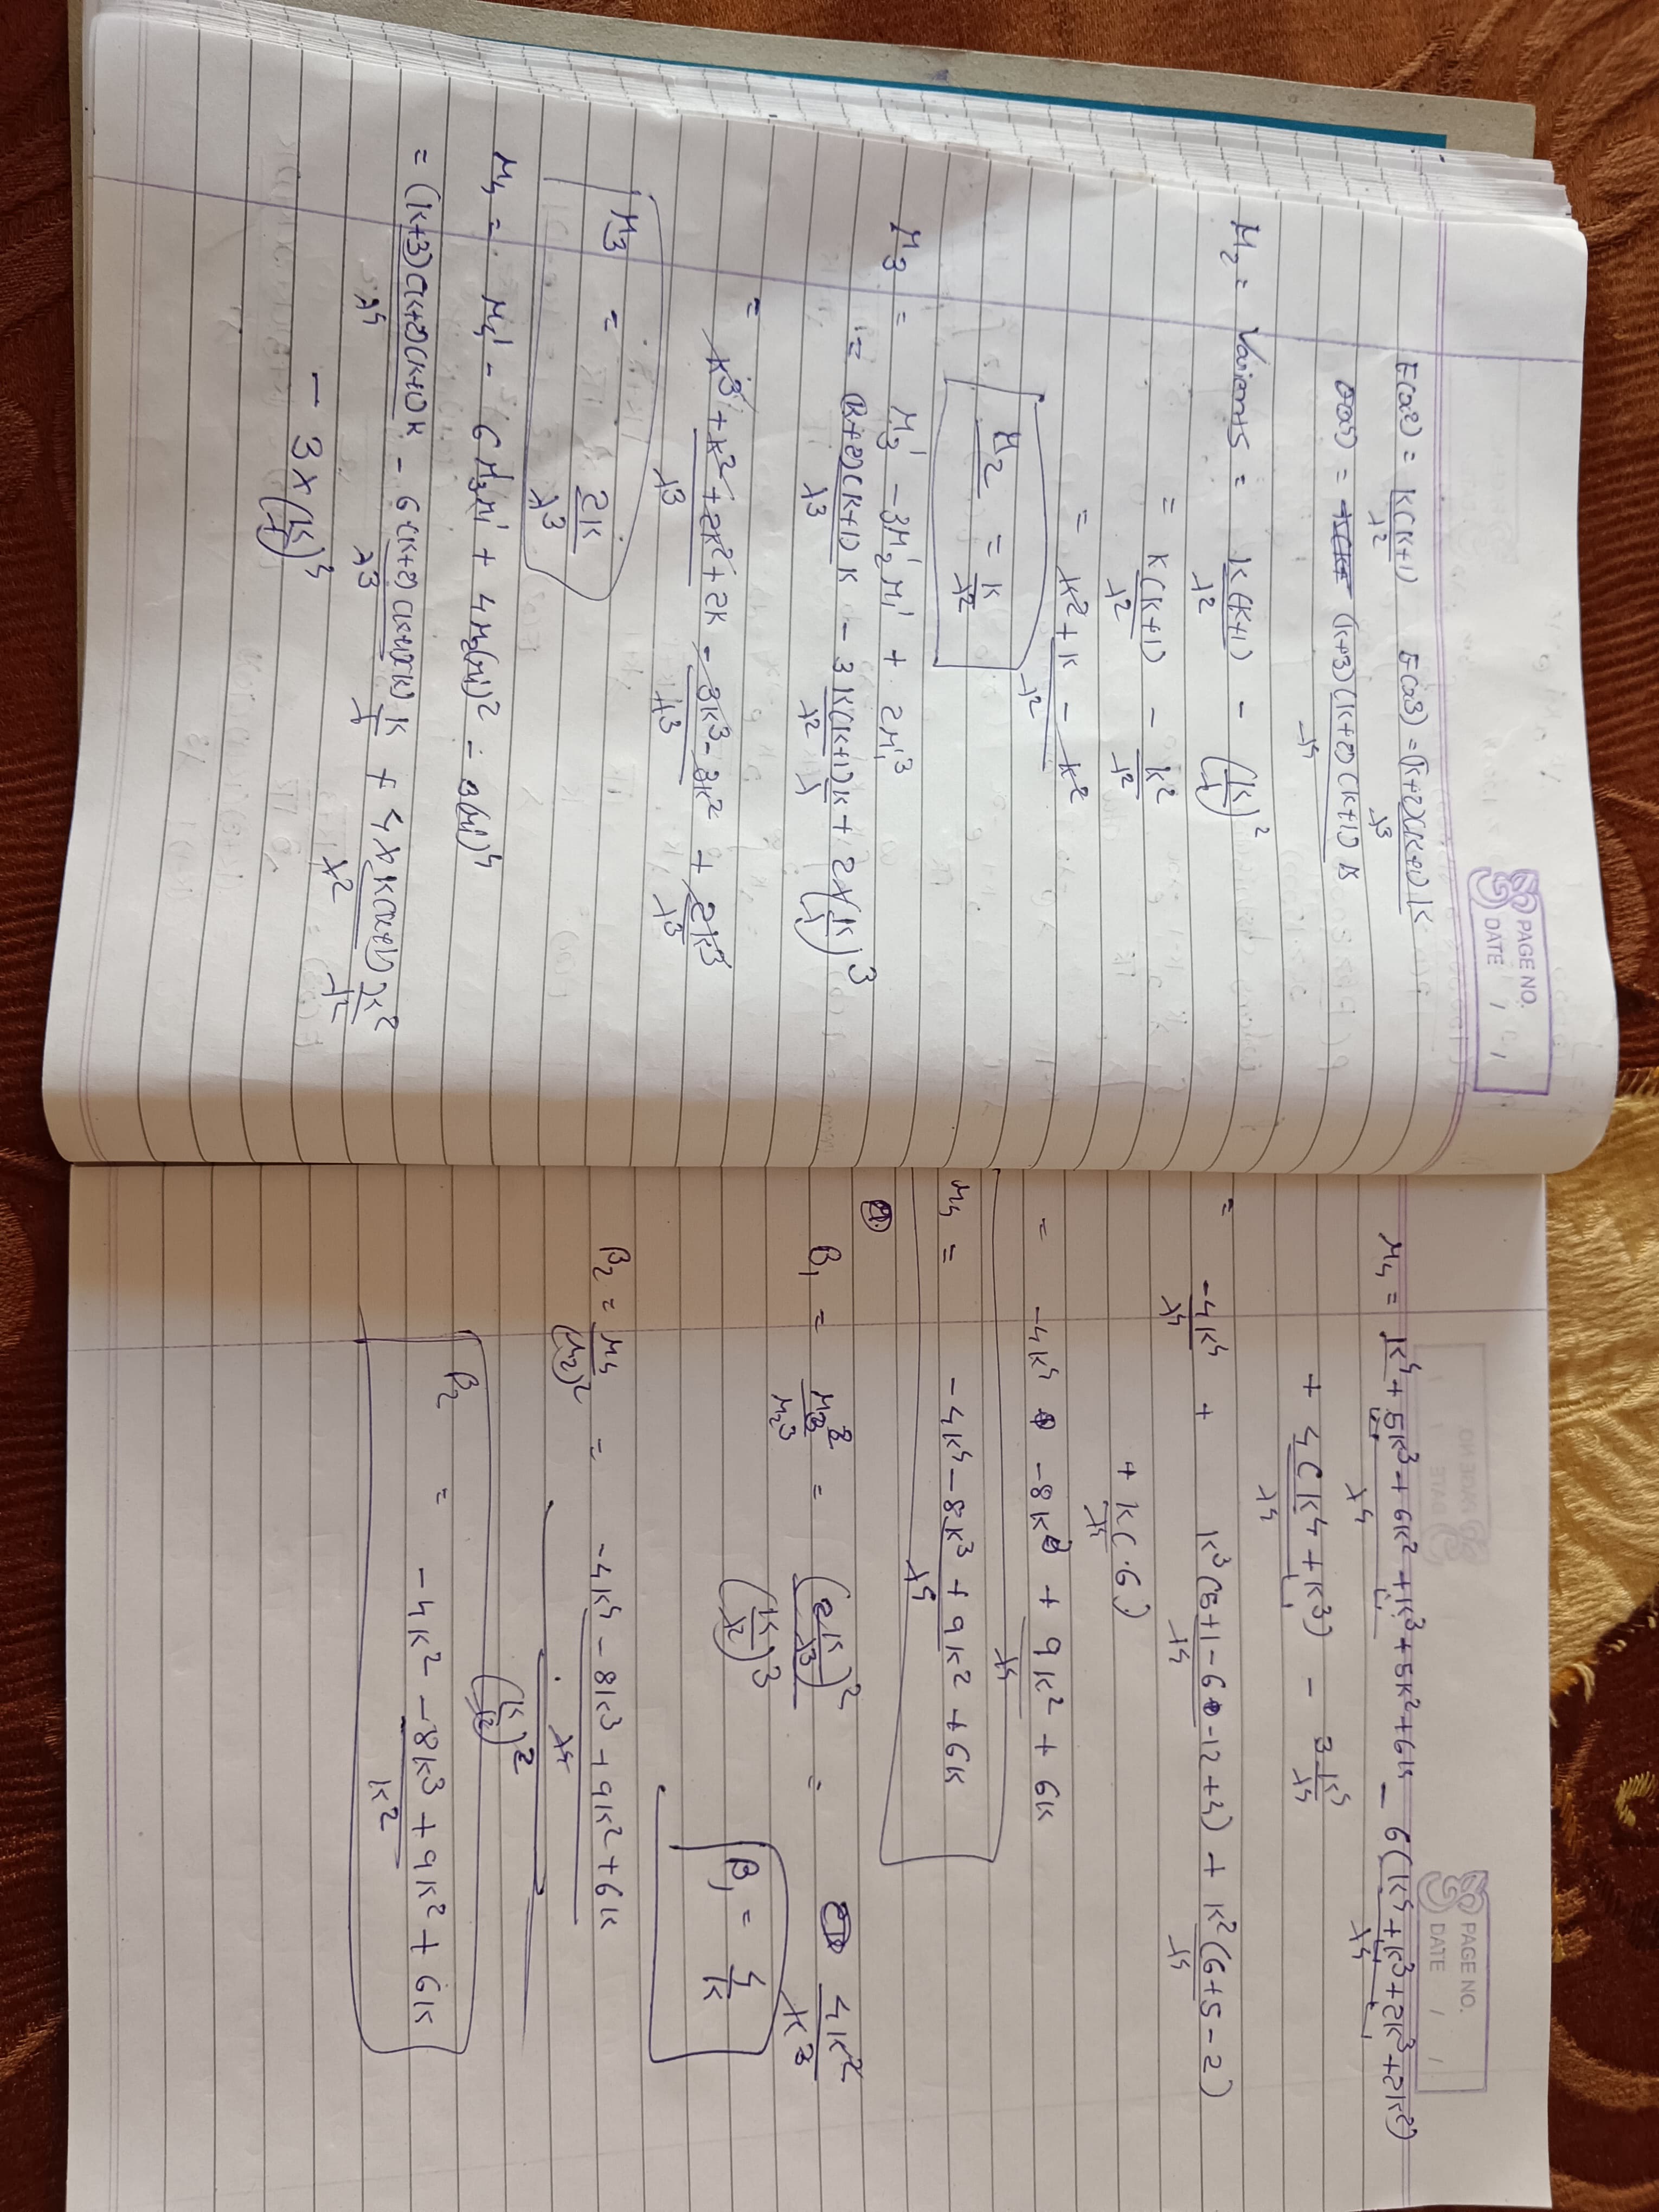 PAGE NO.
DATE / /
E(x2) = K(K+1)/λ2 E(x3) = (K+2)(K+1)K/λ3
= (K+3)(K+2)(K+1)K/λ4
M2 = Varients = K(K+1)/λ2 - (K/λ)2
= K(K+1)/λ2 - K2/λ2
= K2+K - K2/λ2
M2 = K/λ2
M3 = M3' - 3M2'M1' + 2M1'3
= (K+2)(K+1)K/λ3 - 3 K(K+1)/λ2 K/λ + 2×(K/λ)3
= K3+K2+2K2+2K/λ3 - 3K3-3K2/λ3 + 2K3/λ3
M3 = 2K/λ3
M4 = M4' - 6M3'M1' + 4M2(M1')2 - 3(M1')4
= (K+3)(K+2)(K+1)K/λ4 - 6(K+2)(K+1)(K)/λ3 K/λ + 4×K(K+1)/λ2 K2/λ2
- 3×(K/λ)4
PAGE NO.
DATE / /
M4 = K4+5K3+6K2+K3+5K2+6K/λ4 - 6(K4+K3+2K3+2K2)/λ4
+ 4(K4+K3)/λ4 - 3K4/λ4
=
-4K4/λ4 + K3(5+1-6-12+4)/λ4 + K2(6+5-2)/λ4
+ K(6)/λ4
= -4K4 -8K3 + 9K2 + 6K/λ4
M4 = -4K4-8K3+9K2+6K/λ4
B1 = M3 2/M2 3 = (2K/λ3)2/(K/λ2)3 = 4K2/K3
B1 = 4/K
B2 = M4/(M2)2 = -4K4-8K3+9K2+6K/λ4
(K/λ2)2
B2 = -4K2-8K3+9K2+6K/K2